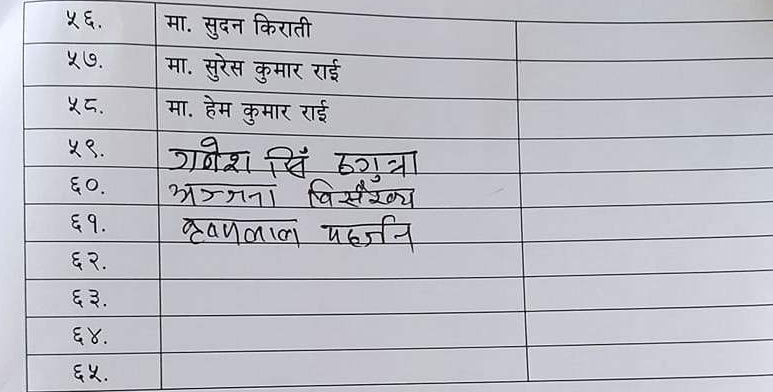 ५६. मा. सुदन किराती
५७. मा. सुरेस कुमार राई
५८. मा. हेम कुमार राई
५९. गणेश सिं ठगुन्ना
६०. अञ्जना विसंख्य
६१. महर्जन
६२.
६३.
६४.
६५.